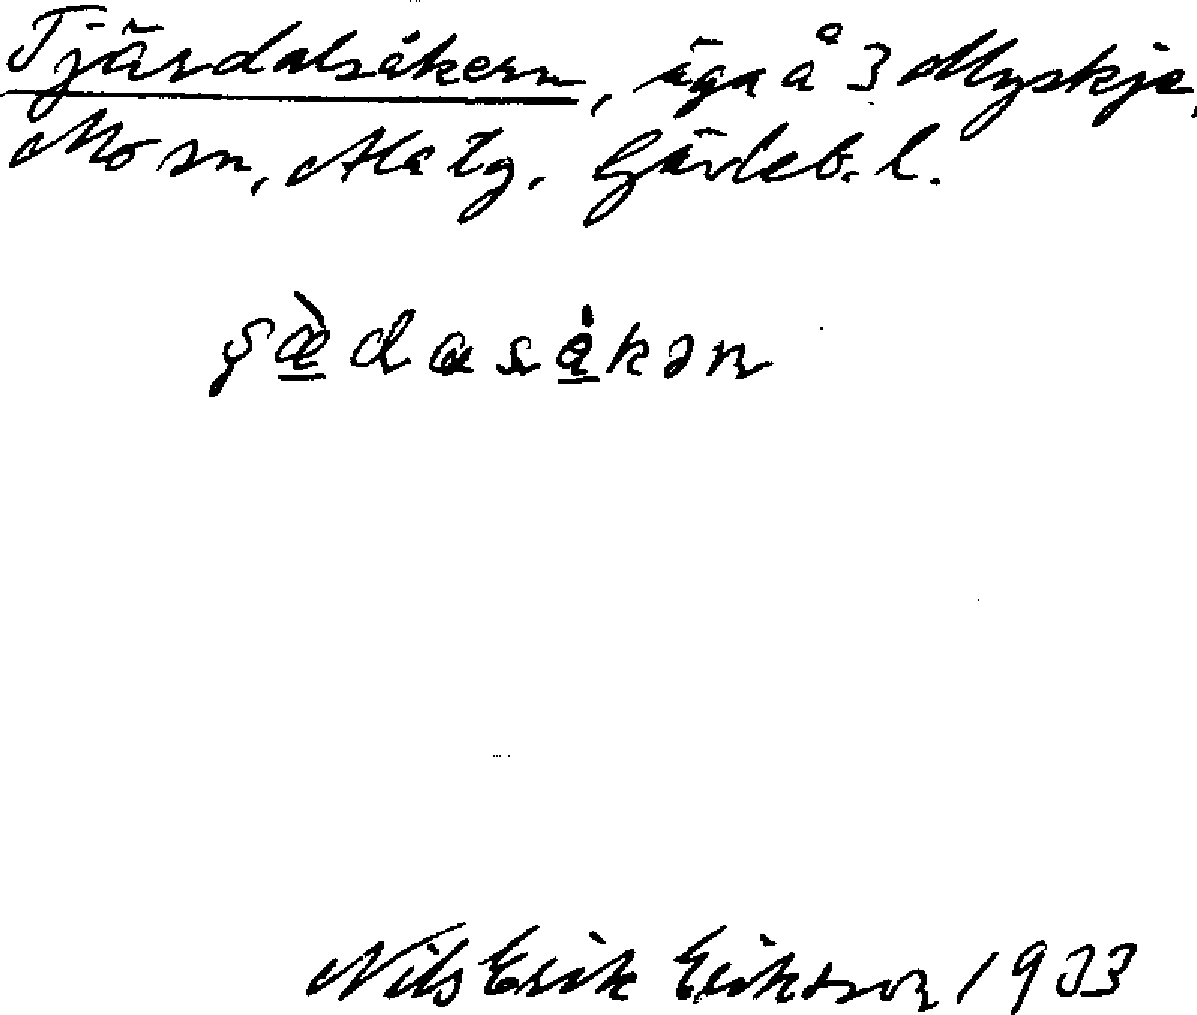 Tjärdalsåkern, äga å 3 Myskje,
Mo sn, Ala tg. Gävleb. l.
ʂæ̀dasåkən
Nils Erik Erikson 1933